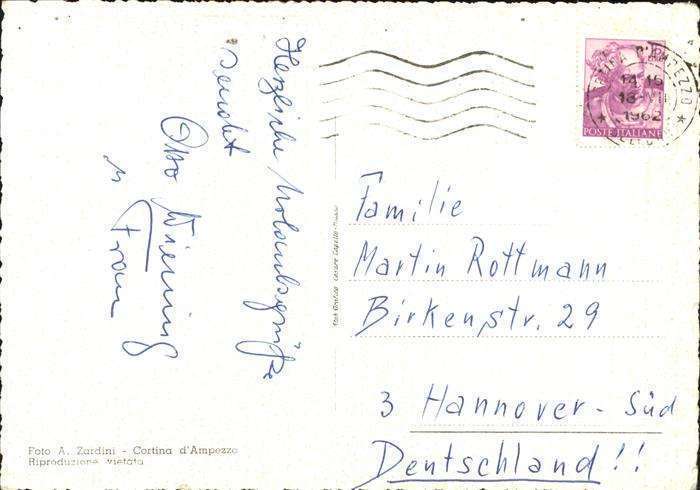 Herzliche Urlaubsgrüße
sendet
Otto
u Frau
CORTINA D'AMPEZZO
14-15
18
1962
POSTE ITALIANE
Familie
Martin Rottmann
Birkenstr. 29
3 Hannover - Süd
Deutschland!!
Foto A. Zardini - Cortina d'Ampezzo
Riproduzione vietata